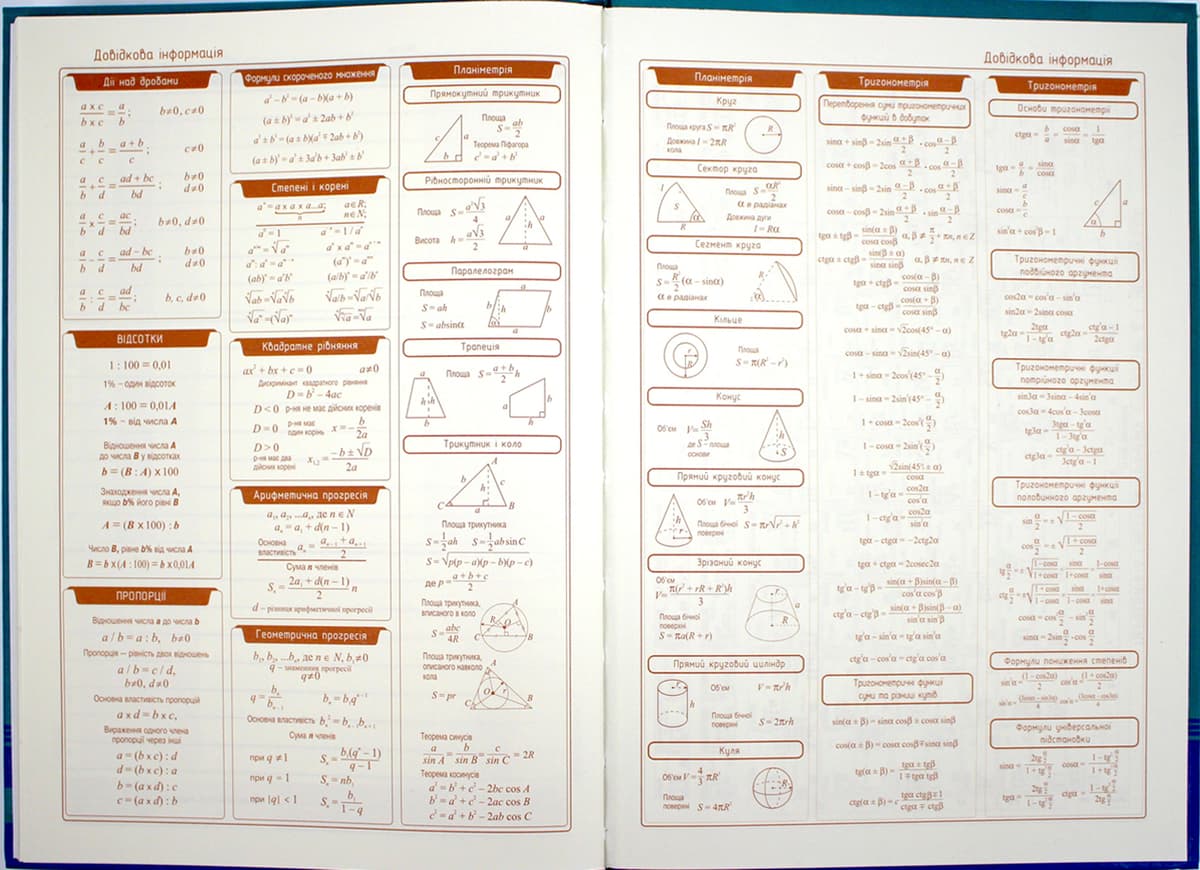 Довідкова інформація
Дії над дробами
a x c / b x c = a / b; b≠0, c≠0
a/c + b/c = a + b / c; c≠0
a/b + c/d = ad + bc / bd; b≠0 d≠0
a/b x c/d = ac / bd; b≠0, d≠0
a/b - c/d = ad − bc / bd; b≠0 d≠0
a/b : c/d = ad / bc; b, c, d≠0
ВІДСОТКИ
1 : 100 = 0,01
1% – один відсоток
A : 100 = 0,01A
1% – від числа A
Відношення числа A
до числа B у відсотках
b = (B : A) x 100
Знаходження числа A,
якщо b% його рівні B
A = (B x 100) : b
Число B, рівне b% від числа A
B = b x (A : 100) = b x 0,01A
ПРОПОРЦІЇ
Відношення числа a до числа b
a / b = a : b, b≠0
Пропорція – рівність двох відношень
a / b = c / d,
b≠0, d≠0
Основна властивість пропорцій
a x d = b x c,
Вираження одного члена
пропорції через інші
a = (b x c) : d
d = (b x c) : a
b = (a x d) : c
c = (a x d) : b
Формули скороченого множення
a² − b² = (a − b)(a + b)
(a ± b)² = a² ± 2ab + b²
(a ± b)³ = a³ ± 3a²b + 3ab² ± b³
Степені і корені
aⁿ = a x a x a...a; a∈R;
n n∈N;
a⁰ = 1
Квадратне рівняння
ax² + bx + c = 0 a≠0
Дискримінант квадратного рівняння
D = b² − 4ac
D < 0 р-ня не має дійсних коренів
D = 0 р-ня має один корінь x = − b / 2a
D > 0
р-ня має два
дійсних корені x₁,₂ = −b ± √D / 2a
Арифметична прогресія
a₁, a₂, ...aₙ, де n ∈ N
aₙ = a₁ + d(n − 1)
Основна
властивість aₙ = aₙ₋₁ + aₙ₊₁ / 2
Сума n членів
Sₙ = 2a₁ + d(n − 1) / 2 n
d – різниця арифметичної прогресії
Геометрична прогресія
b₁, b₂, ...bₙ, де n ∈ N, b₁≠0
q – знаменник прогресії
q≠0
q = bₙ / bₙ₋₁ bₙ = b₁qⁿ⁻¹
Основна властивість bₙ² = bₙ₋₁ bₙ₊₁
Сума n членів
при q ≠1 Sₙ = b₁(qⁿ − 1) / q − 1
при q = 1 Sₙ = nb₁
при |q| < 1 Sₙ = b₁ / 1 − q
Планіметрія
Прямокутний трикутник
a
c
b
Площа
S = ab / 2
Теорема Піфагора
c² = a² + b²
Рівносторонній трикутник
Площа S = a²√3 / 4
Висота h = a√3 / 2
a h a
a
Паралелограм
Площа
S = ah
S = absinα
a
b h b
α
a
Трапеція
Площа S = a + b / 2 h
a
h h
b
a b
h
Трикутник і коло
A
b h c
C a B
Площа трикутника
S = 1/2 ah S = 1/2 ab sin C
S = √p(p − a)(p − b)(p − c)
де p = a + b + c / 2
Площа трикутника,
вписаного в коло
S = abc / 4R
Площа трикутника,
описаного навколо
кола
S = pr
Теорема синусів
a / sin A = b / sin B = c / sin C = 2R
Теорема косинусів
a² = b² + c² − 2bc cos A
b² = a² + c² − 2ac cos B
c² = a² + b² − 2ab cos C
Довідкова інформація
Планіметрія
Круг
Площа круга S = πR²
Довжина кола l = 2πR
R
Сектор круга
l
S
α
R
Площа S = αR² / 2
α в радіанах
Довжина дуги
l = Rα
Сегмент круга
Площа
S = R²/2 (α − sinα)
α в радіанах
R
α
Кільце
r
R
Площа
S = π(R² − r²)
Конус
Об'єм V = Sh / 3
де S – площа
основи
h
S
Прямий круговий конус
h
r
Об'єм V = πr²h / 3
Площа бічної
поверхні S = πr√r² + h²
Зрізаний конус
Об'єм
V = π(r² + rR + R²)h / 3
Площа бічної
поверхні
S = πa(R + r)
r
h a
R
Прямий круговий циліндр
r
h
Об'єм V = πr²h
Площа бічної
поверхні S = 2πrh
Куля
Об'єм V = 4/3 πR³
Площа
поверхні S = 4πR²
R
Тригонометрія
Перетворення суми тригонометричних
функцій в добуток
sinα + sinβ = 2sin α + β / 2 · cos α − β / 2
cosα + cosβ = 2cos α + β / 2 · cos α − β / 2
sinα − sinβ = 2sin α − β / 2 · cos α + β / 2
tgα ± tgβ = sin(α ± β) / cosα cosβ α, β ≠ π/2 + πn, n ∈ Z
ctgα ± ctgβ = sin(β ± α) / sinα sinβ α, β ≠ πn, n ∈ Z
tgα + ctgβ = cos(α − β) / cosα sinβ
tgα − ctgβ = cos(α + β) / cosα sinβ
cosα + sinα = √2cos(45° − α)
cosα − sinα = √2sin(45° − α)
1 + sinα = 2cos²(45° − α/2)
1 − sinα = 2sin²(45° − α/2)
1 + cosα = 2cos²(α/2)
1 − cosα = 2sin²(α/2)
1 ± tgα = √2sin(45° ± α) / cosα
1 − tg²α = cos2α / cos²α
1 − ctg²α = cos2α / sin²α
tgα − ctgα = −2ctg2α
tgα + ctgα = 2cosec2α
tg²α − tg²β = sin(α + β)sin(α − β) / cos²α cos²β
ctg²α − ctg²β = sin(α + β)sin(β − α) / sin²α sin²β
tg²α − sin²α = tg²α sin²α
ctg²α − cos²α = ctg²α cos²α
Тригонометричні функції
суми та різниці кутів
sin(α ± β) = sinα cosβ ± cosα sinβ
cos(α ± β) = cosα cosβ∓sinα sinβ
tg(α ± β) = tgα ± tgβ / 1 ∓ tgα tgβ
Тригонометрія
Основи тригонометрії
ctgα = b / a = cosα / sinα = 1 / tgα
tgα = a / b = sinα / cosα
sinα = a / c
cosα = b / c
sin²α + cos²β = 1
c a
α
b
Тригонометричні функції
подвійного аргумента
cos2α = cos²α − sin²α
sin2α = 2sinα cosα
tg2α = 2tgα / 1 − tg²α ctg2α = ctg²α − 1 / 2ctgα
Тригонометричні функції
потрійного аргумента
sin3α = 3sinα − 4sin³α
cos3α = 4cos³α − 3cosα
tg3α = 3tgα − tg³α / 1 − 3tg²α
ctg3α = ctg³α − 3ctgα / 3ctg²α − 1
Тригонометричні функції
половинного аргумента
sin α/2 = ± √1 − cosα / 2
cos α/2 = ± √1 + cosα / 2
cosα = cos² α/2 − sin² α/2
sinα = 2sin α/2 · cos α/2
Формули пониження степенів
sin²α = (1 − cos2α) / 2 cos²α = (1 + cos2α) / 2
Формули універсальної
підстановки